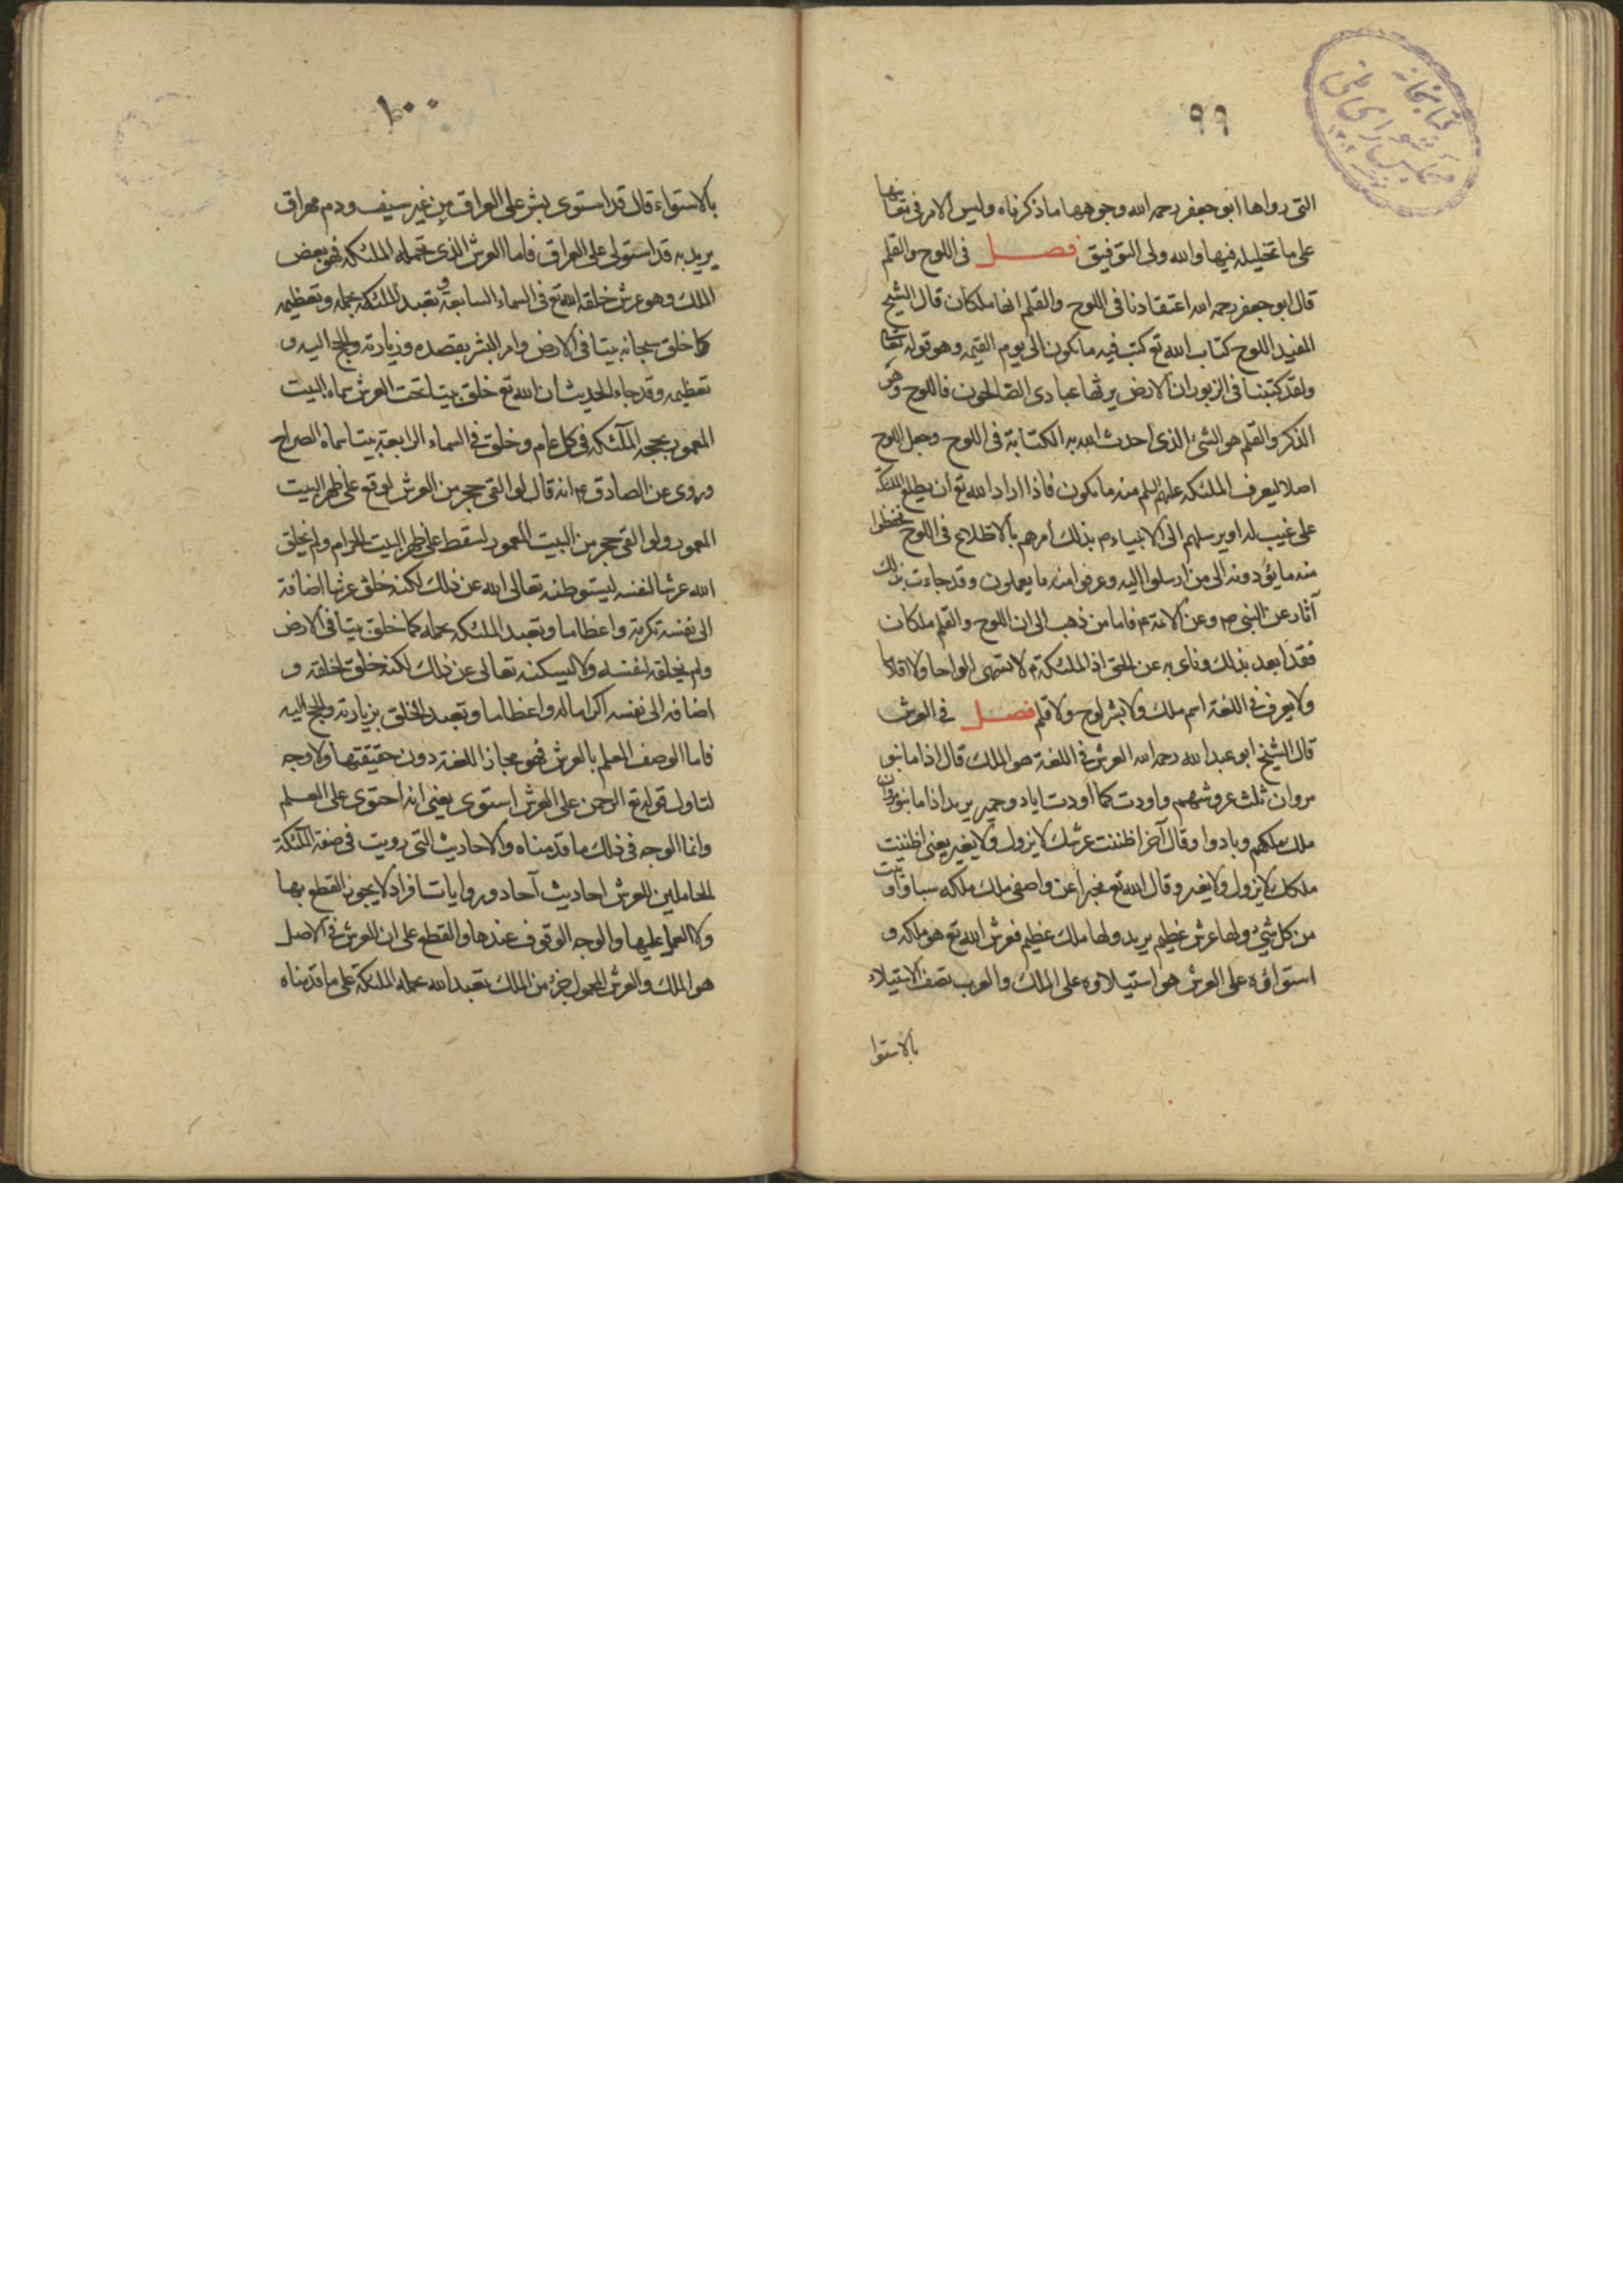 ٩٩
كتابخانه
مجلس شورای ملی
التى رواها ابو جعفر رحمه الله وجوهها ما ذكرناه وليس الامر فى معانيها
على ما تخيله فيها والله ولى التوفيق فصل فى اللوح والقلم
قال ابو جعفر رحمه الله اعتقادنا فى اللوح والقلم انهما ملكان قال الشيخ
المفيد اللوح كتاب الله تع كتب فيه ما يكون الى يوم القيمه وهو قوله تعالى
ولقد كتبنا فى الزبور ان الارض يرثها عبادى الصالحون فاللوح وهو
الذكر والقلم هو الشىء الذى احدث الله به الكتابة فى اللوح وجعل اللوح
اصلا ليعرف الملئكه عليهم السلم منه ما يكون فاذا اراد الله تع ان يطلع الملئكة
على غيب له او يرسلهم الى الانبياء م بذلك امرهم بالاطلاع فى اللوح فحفظوا
منه ما يؤدونه الى من ارسلوا اليه وعرفوا منه ما يعملون وقد جاءت بذلك
آثار عن النبى ص وعن الائمة ع فاما من ذهب الى ان اللوح والقلم ملكان
فقد ابعد بذلك وناى به عن الحق اذ الملئكة م لا تسمى الواحا ولا اقلاما
ولا يعرف فى اللغة اسم ملك ولا بشر لوح ولا قلم فصل فى العرش
قال الشيخ ابو عبد الله رحمه الله العرش فى اللغة هو الملك قال اذا ما بنو
مروان ثلث عروشهم واودت كما اودت اياد وحمير يريد اذا ما بنو مروان
ملك ملكهم وبادوا وقال آخر اظننت عرشك لا يزول ولا يغير يعنى اظننت
ملكك لا يزول ولا يغير وقال الله تع مخبرا عن واصفى ملك ملكه سبا واوتيت
من كل شىء ولها عرش عظيم يريد ولها ملك عظيم فعرش الله تع هو ملكه و
استواؤه على العرش هو استيلاوه على الملك والعرب تصف الاستيلاء
بالاستوا
١٠٠
بالاستواء قال قد استوى بشر على العراق من غير سيف ودم مهراق
يريد به قد استولى على العراق فاما العرش الذى تحمله الملئكه فهو بعض
الملك وهو عرش خلقه الله تع فى السماء السابعة و تعبد الملئكه بحمله وتعظيمه
كما خلق سبحانه بيتا فى الارض وامر البشر بقصده وزيارته والحج اليه و
تعظيمه وقد جاء الحديث ان الله تع خلق بيتا تحت العرش سماه البيت
المعمور يحجه الملآئكه فى كل عام وخلق فى السماء الرابعة بيتا سماه الضراح
وروى عن الصادق ع انه قال لو القى حجر من العرش لوقع على ظهر البيت
المعمور ولو القى حجر من البيت المعمور لسقط على ظهر البيت الحرام ولم يخلق
الله عرشا لنفسه ليستوطنه تعالى الله عن ذلك لكنه خلق عرشا اضافة
الى نفسه تكرمة واعظاما وتعبد الملئكه بحمله كما خلق بيتا فى الارض
ولم يخلقه لنفسه ولا ليسكنه تعالى عن ذلك لكنه خلق لخلقه و
اضافه الى نفسه اكراما له واعظاما وتعبد الخلق بزيارته والحج اليه
فاما الوصف العلم بالعرش فهو مجاز اللغة دون حقيقتها ولا وجه
لتاول قوله تع الرحمن على العرش استوى يعنى انه احتوى على العلم
وانما الوجه فى ذلك ما قدمناه والاحاديث التى رويت فى صفة الملئكة
الحاملين للعرش احاديث آحاد وروايات افراد لا يجوز القطع بها
ولا العمل عليها والوجه الوقوف عندها والقطع على ان العرش فى الاصل
هو الملك والعرش المحمول جزء من الملك تعبد الله بحمله الملئكة على ما قدمناه